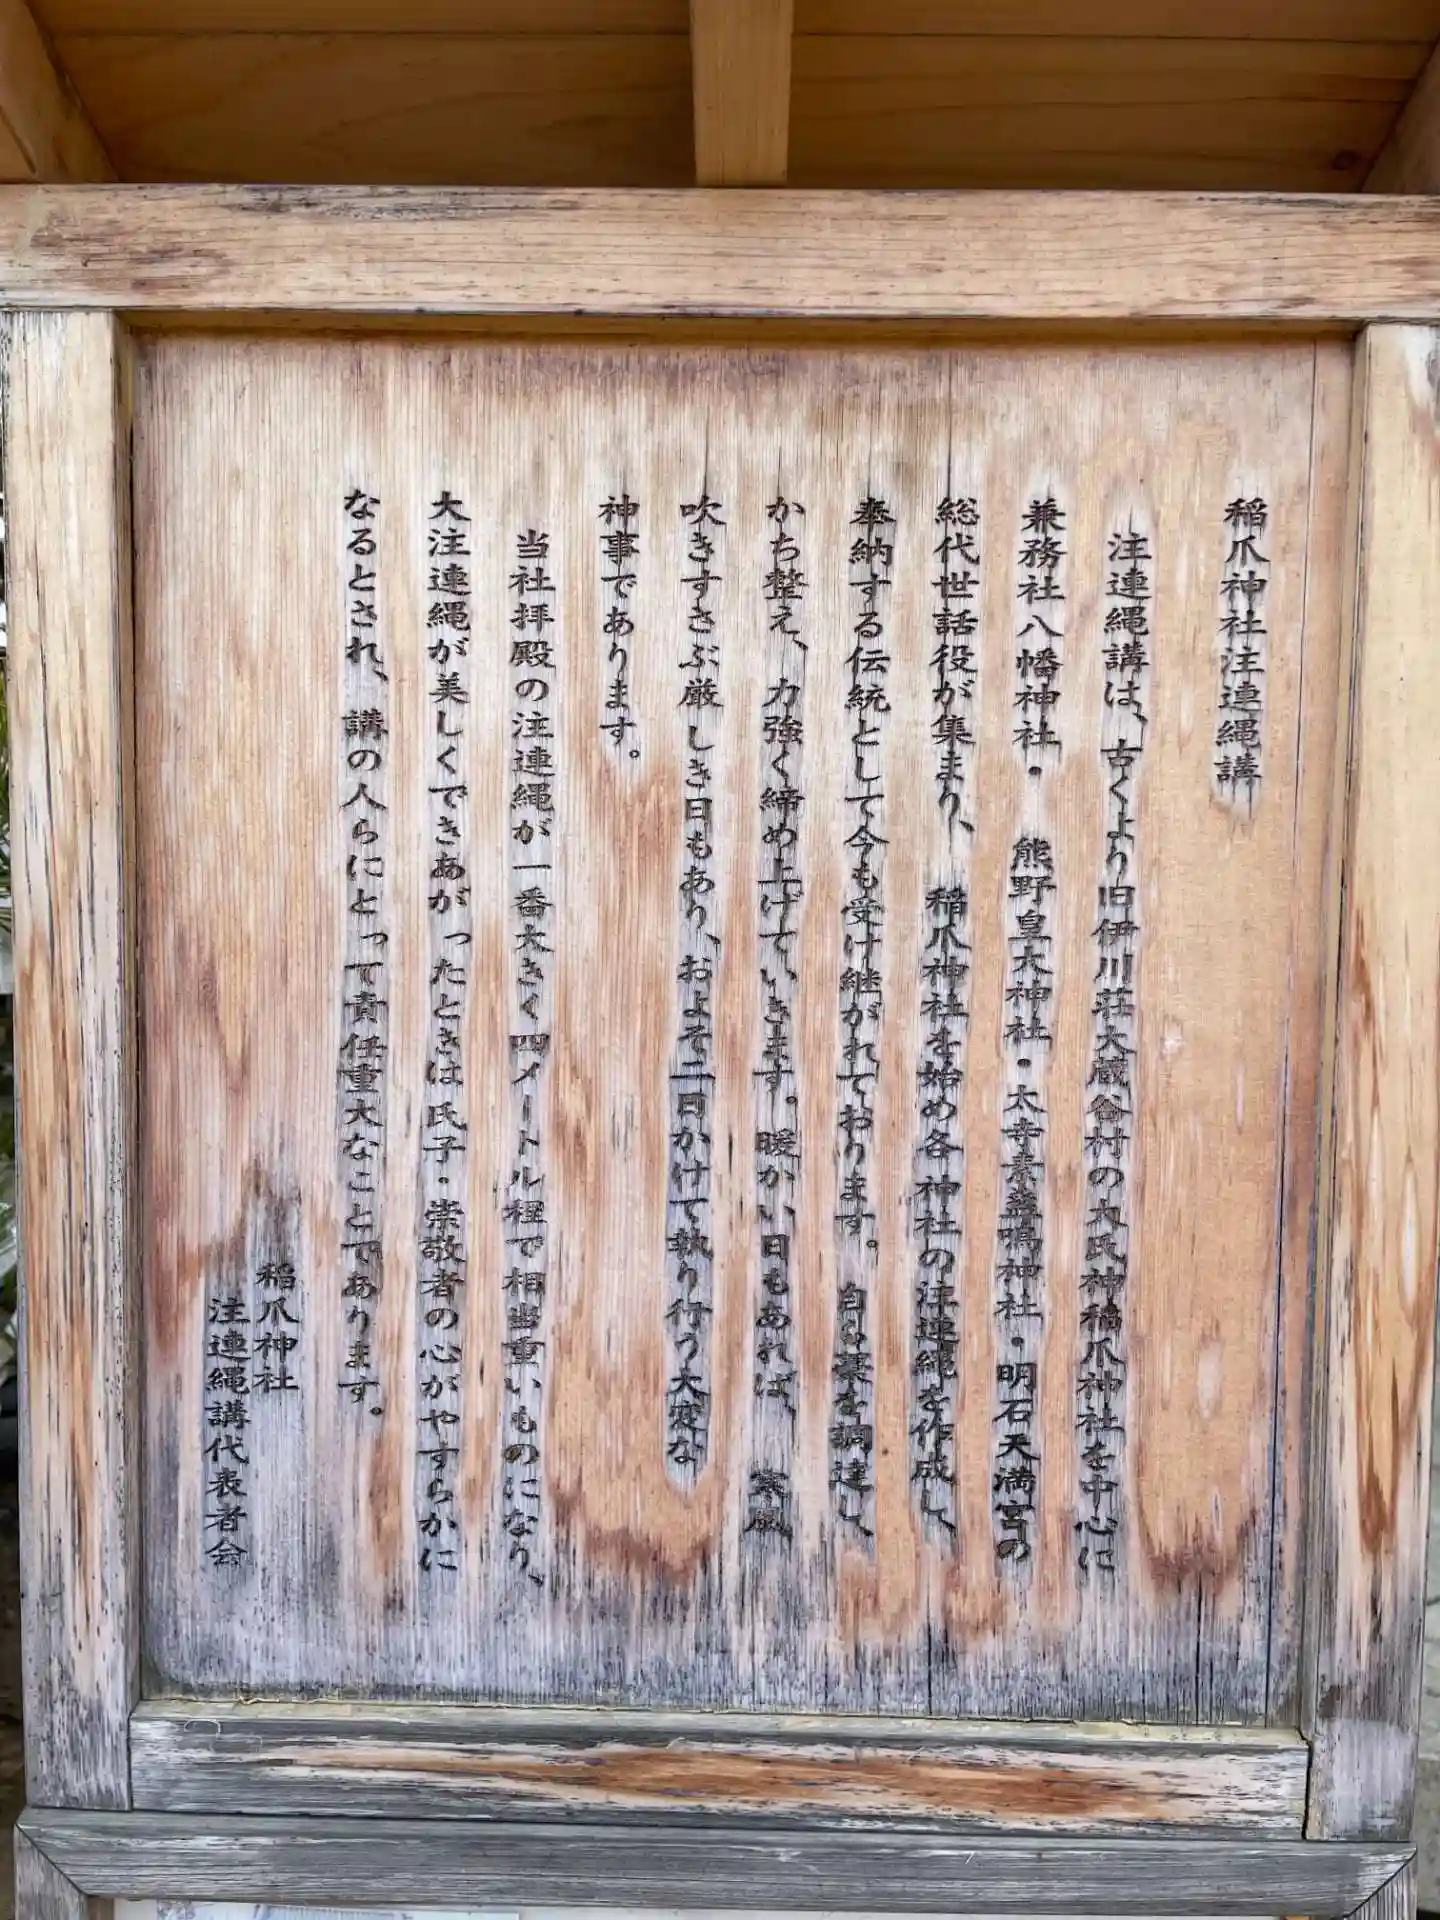 稲爪神社注連縄講
注連縄講は、古くより旧伊川荘大蔵谷村の大氏神稲爪神社を中心に
兼務社八幡神社・熊野皇大神社・太寺素盞鳴神社・明石天満宮の
総代世話役が集まり、稲爪神社を始め各神社の注連縄を作成し、
奉納する伝統として今も受け継がれております。自ら藁を調達し、
かち整え、力強く締め上げていきます。暖かい日もあれば、寒風
吹きすさぶ厳しき日もあり、およそ二日かけて執り行う大変な
神事であります。
当社拝殿の注連縄が一番大きく四メートル程で相当重いものになり、
大注連縄が美しくできあがったときは氏子・崇敬者の心がやすらかに
なるとされ、講の人らにとって責任重大なことであります。
稲爪神社
注連縄講代表者会